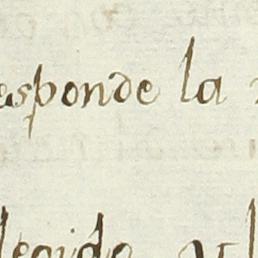 esponde la
legido